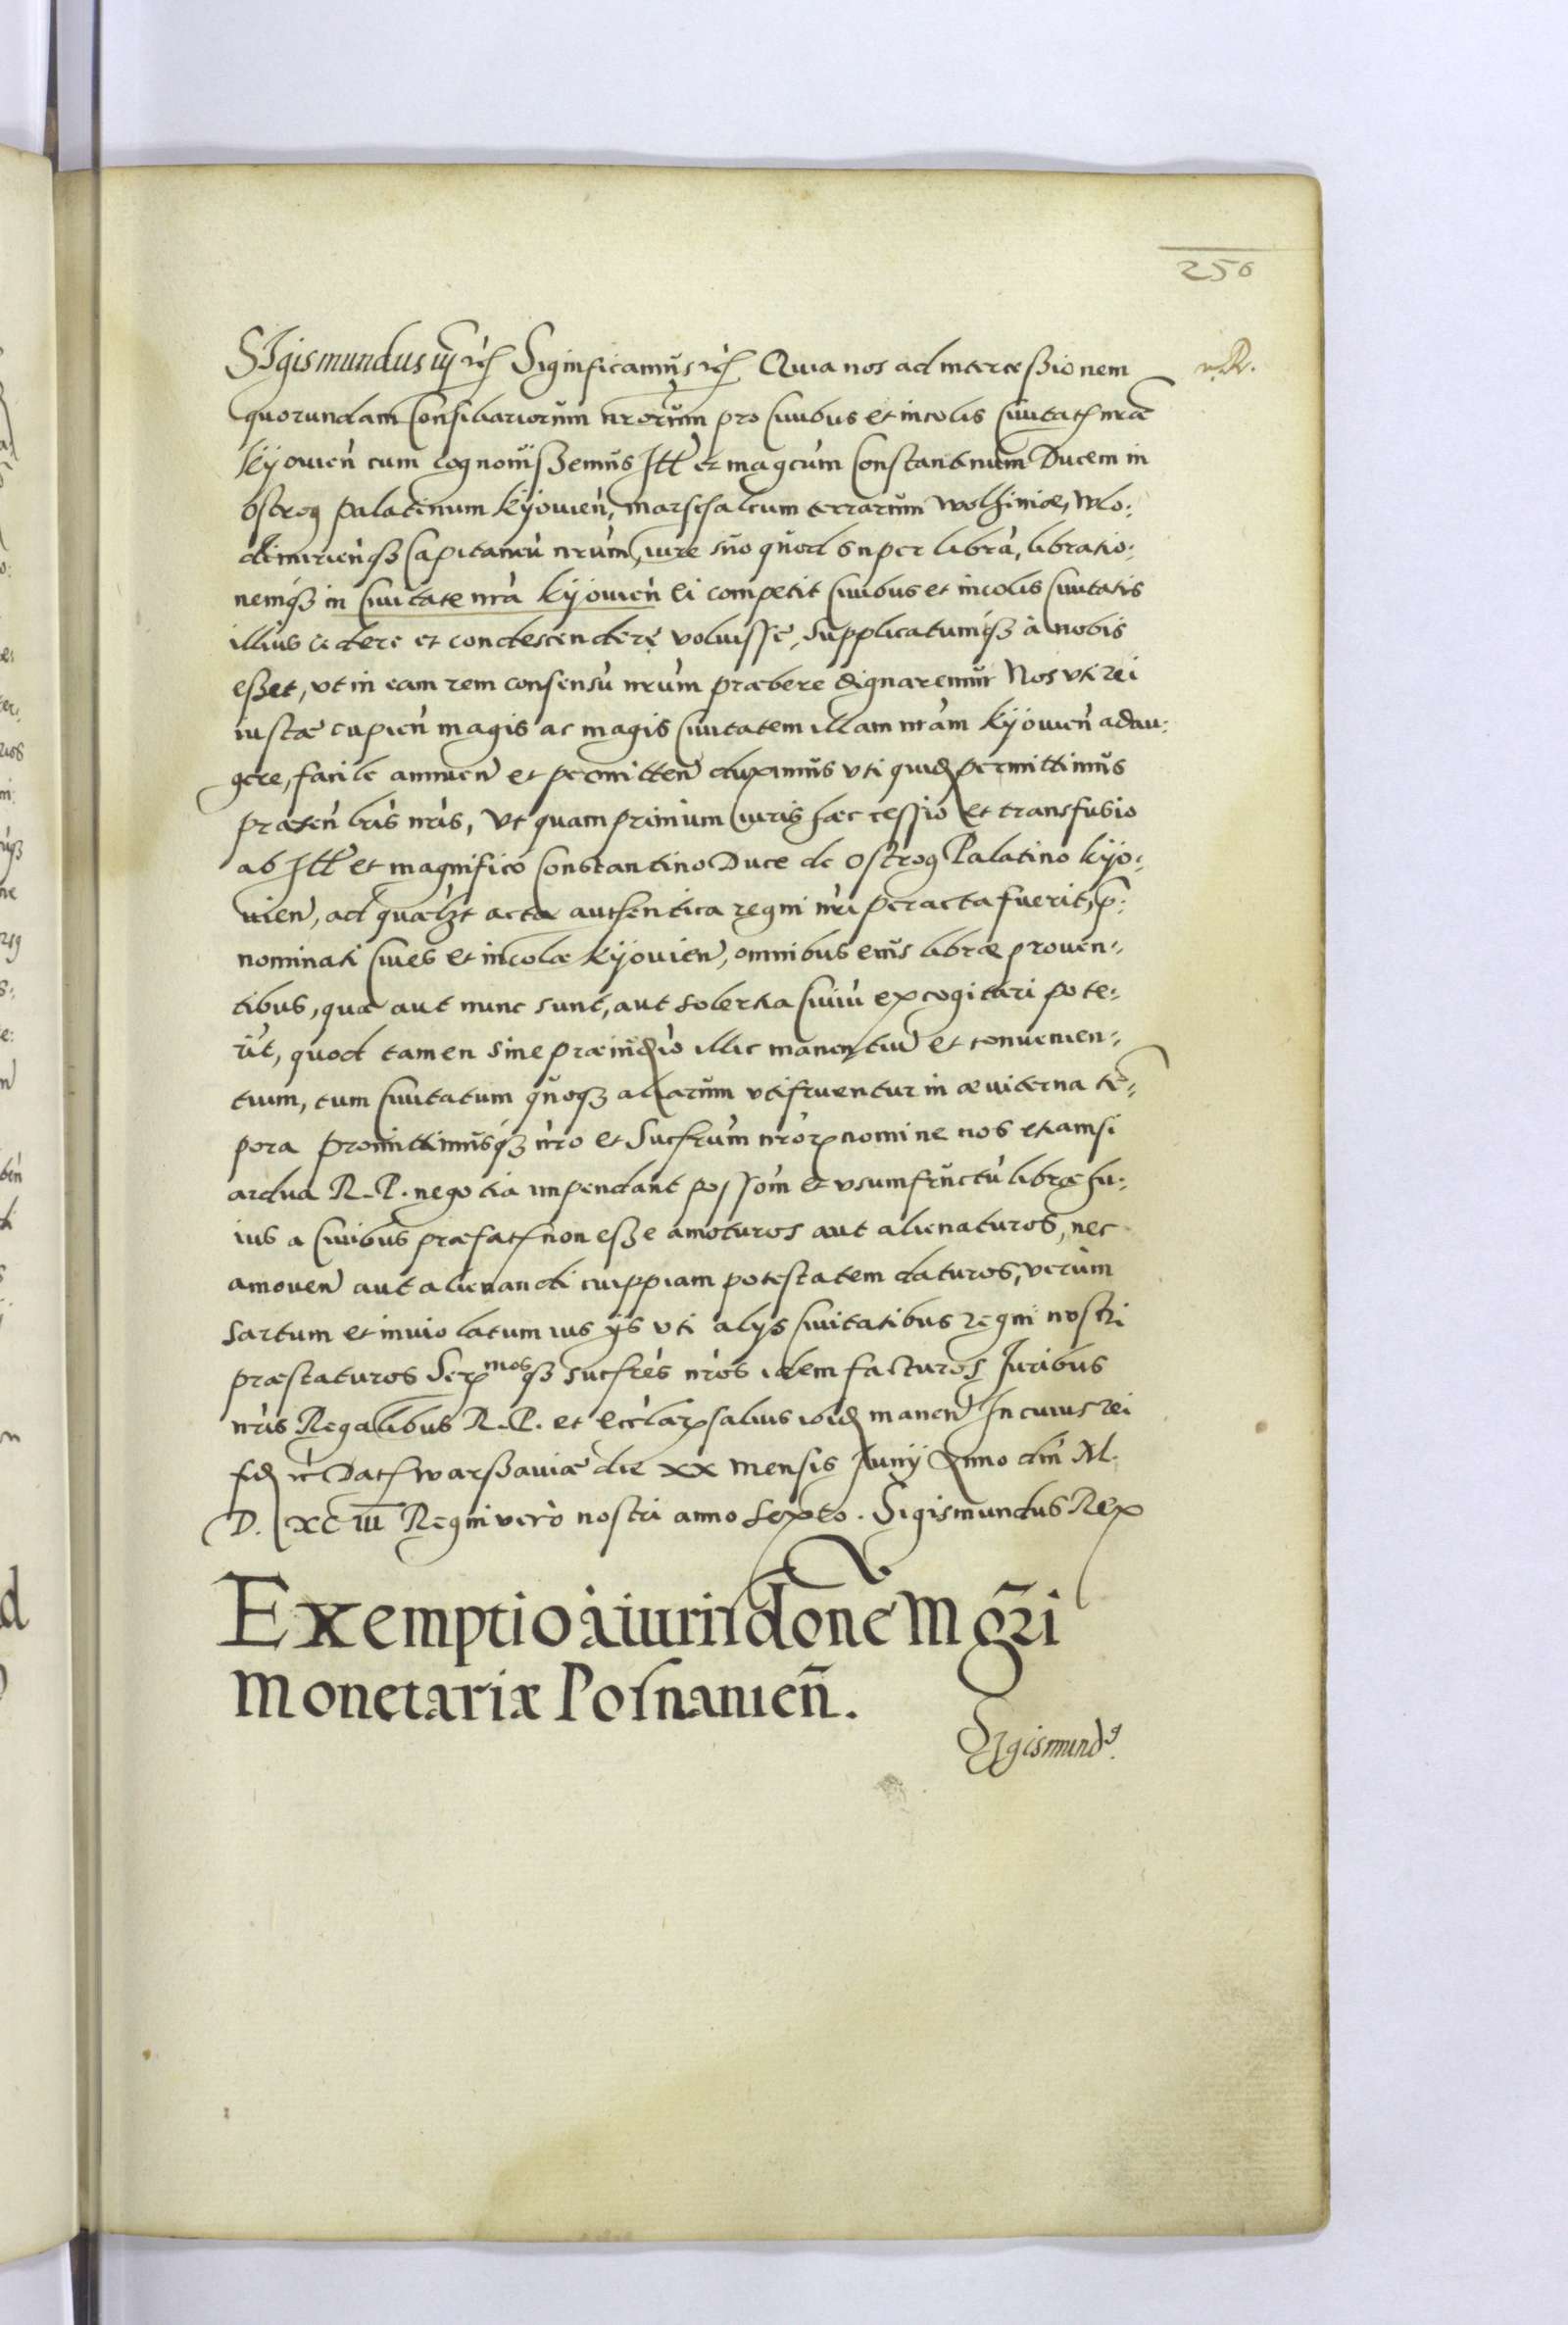 250
SIgismundus iij etc Significamus etc Quia nos ad intercessionem
quorundam Consiliariorum nrorum pro Ciuibus et incolis Ciuitatis nrae
Kijouień cum cognouissemus Ill et magcum Constantinum Ducem in
Ostrog Palatinum Kijouień, marschalcum terrarum Wolhiniae, Wlo:
dimirieńqз Capitaneu nrum, iure suo quod super libra, libratio:
nemqз in Ciuitate nra Kijouień ei competit Ciuibus et incolis Ciuitatis
illius cedere et condescendere voluisse, supplicatumqз à nobis
esset, vt in eam rem consensu nrum praebere dignaremur Nos vti rei
iustae cupień magis ac magis Ciuitatem illam nram Kijouień adau:
gere, facile annuen et permitten duximus vti quid permittimus
praesen lris nris, Vt quamprimum iuris haec cessio et transfusio
ab Ill et magnifico Constantino Duce de Ostrog Palatino Kijo:
uien, ad quaelzt acta authentica regni nri peracta fuerit, p:
nominati Ciues et incolae Kijouien, omnibus eius librae prouen:
tibus, quae aut nunc sunt, aut solertia Ciuiu excogitari pote:
rit, quod tamen sine praeiudio illic manentiu et conuenien:
tium, tum Ciuitatum quoqз aliarum vtifruentur in aeuiterna te:
pora Promittimusqз nro et Succrum nror nomine nos etiamsi
ardua R. P. negotia impendant possom et vsumfructu librae hu:
ius a Ciuibus praefatis non esse amoturos aut alienaturos, nec
amouen aut alienandi cuippiam potestatem daturos, verum
sartum et inuiolatum ius ijs vti alijs Ciuitatibus regni nostri
praestaturos Sermosqз succres nros idem facturos Iuribus
nris Regalibus R. P. et Ecclar saluis ibid manen In cuius rei
fid etc Dat Warssauiae die XX mensis Junij Anno dni M.
D. XC III Regni vero nostri anno sexto. Sigismundus Rex
Exemptio à iurisdone Mgri
Monetariae Posnanien̄.
SIgismundꝰ.